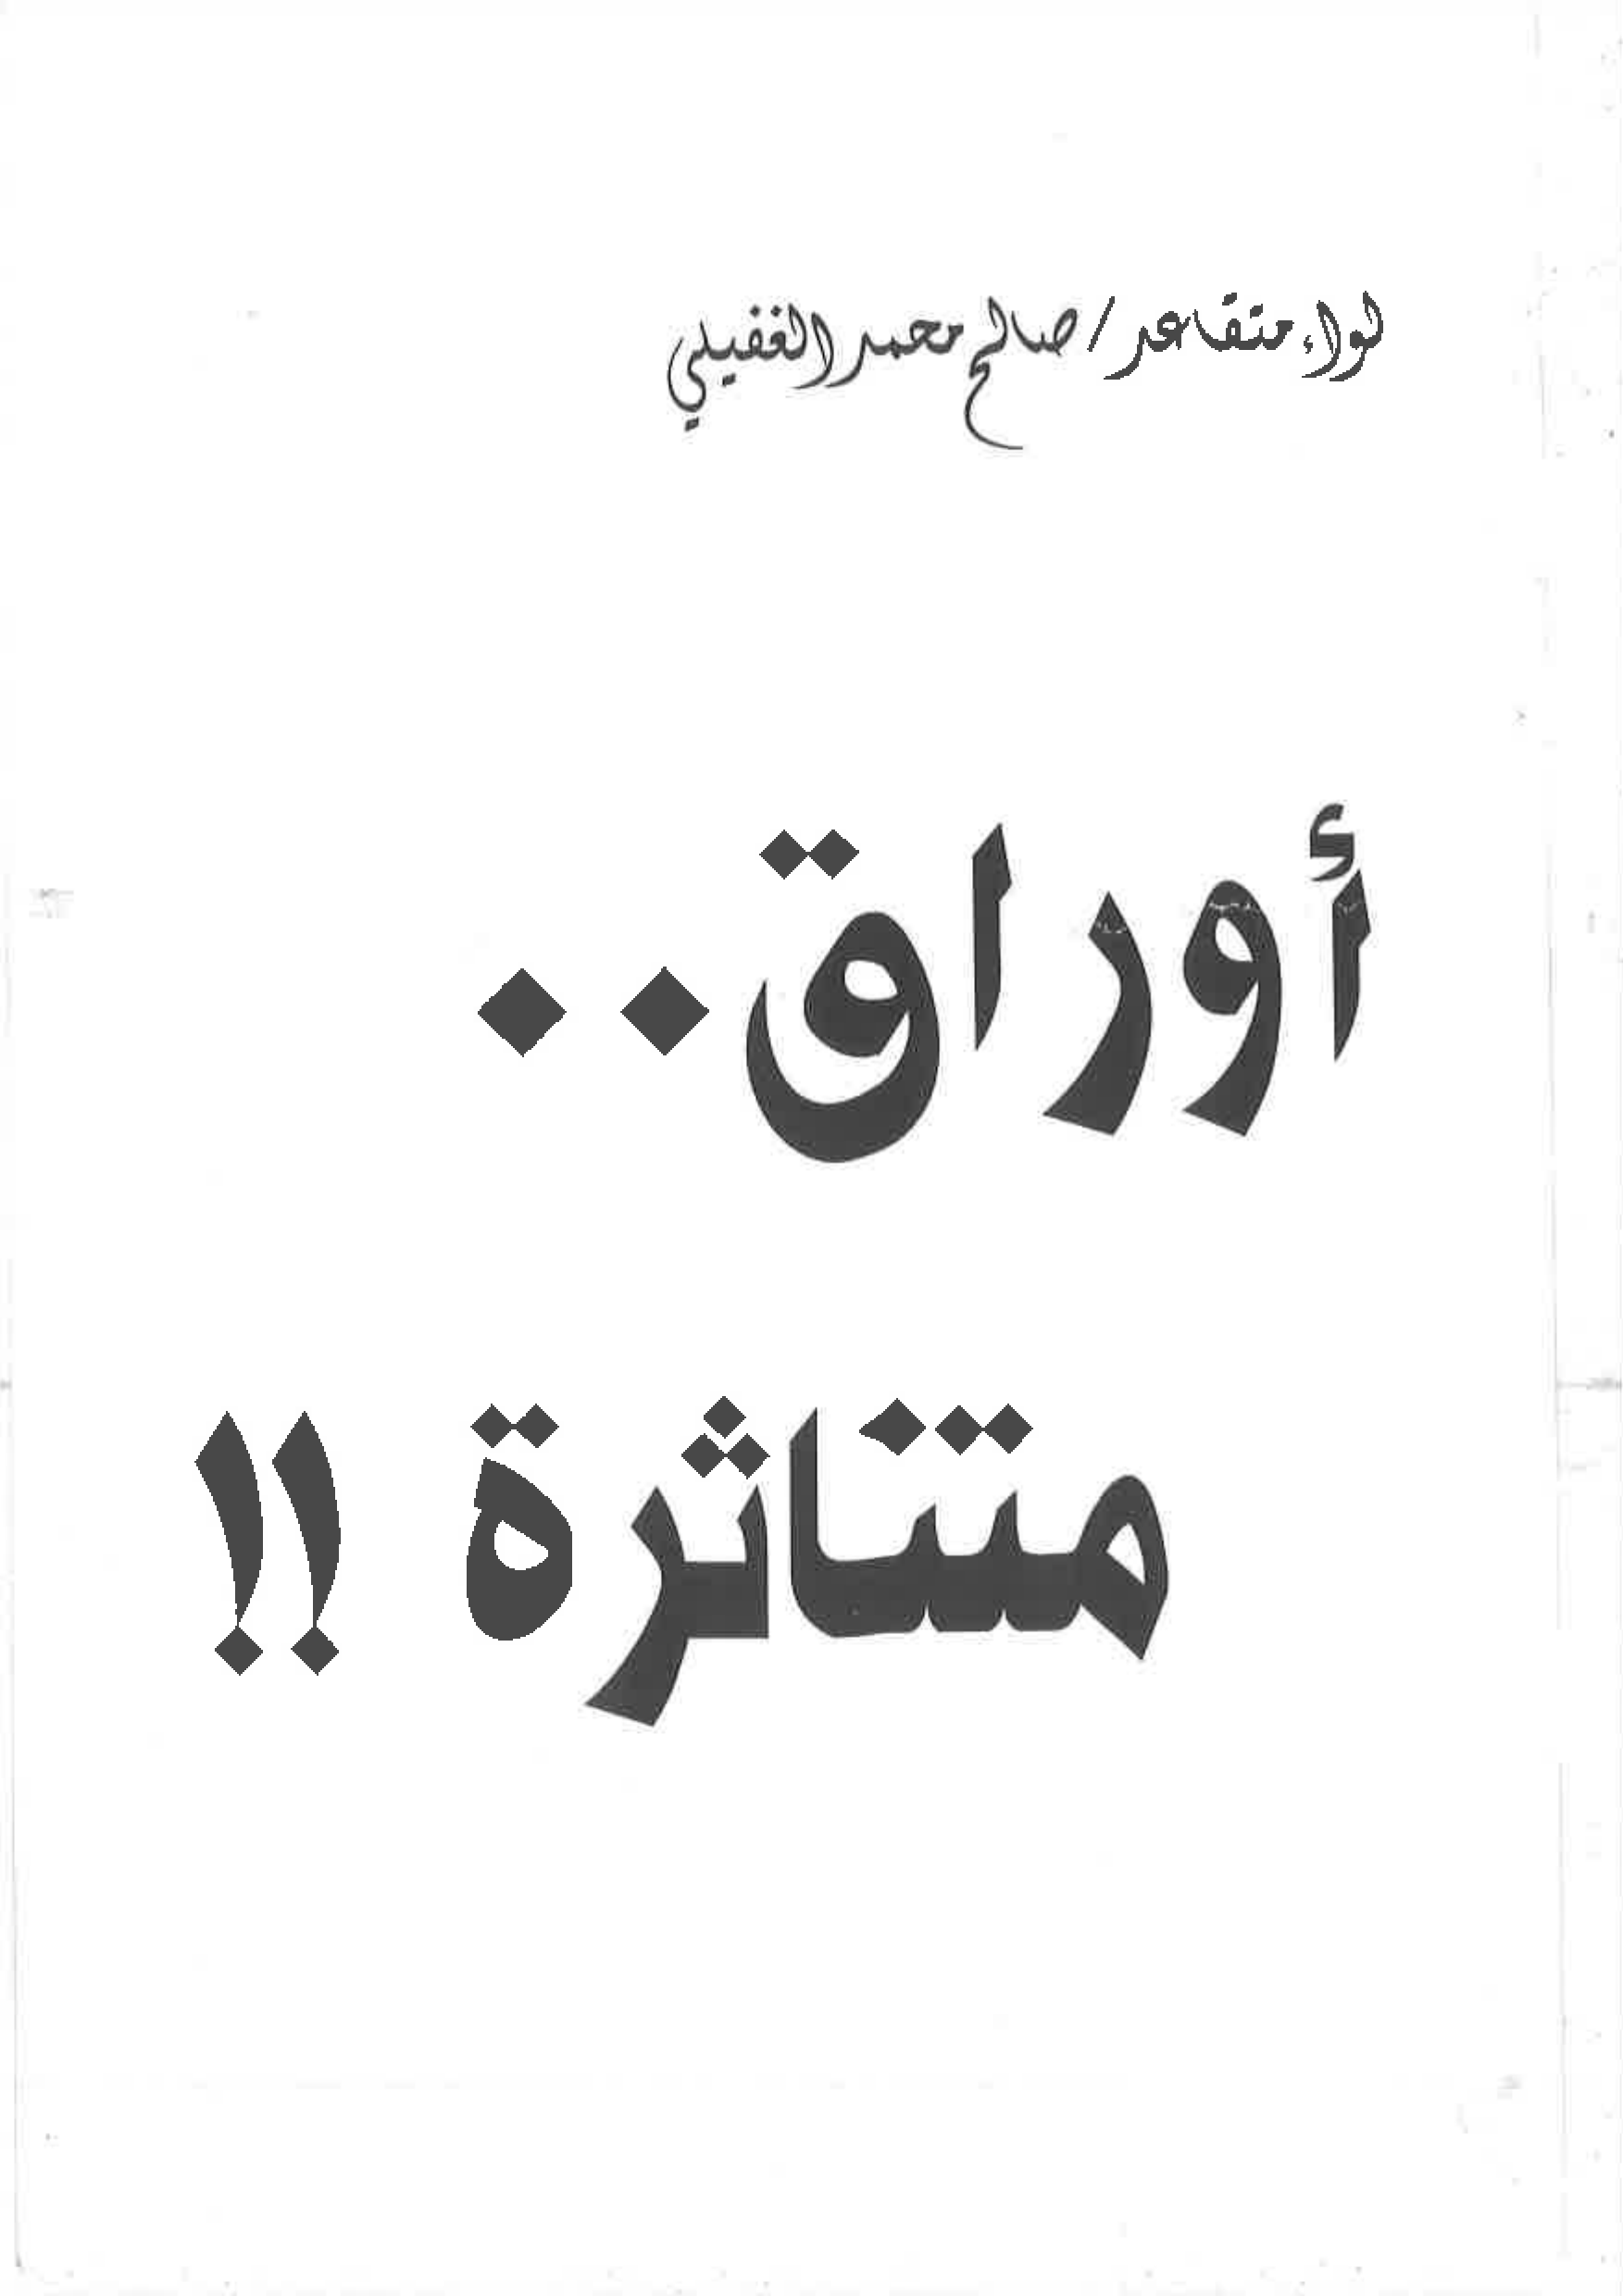 لواء متقاعد / صالح محمد الغفيلي
أوراق..
متناثرة !!